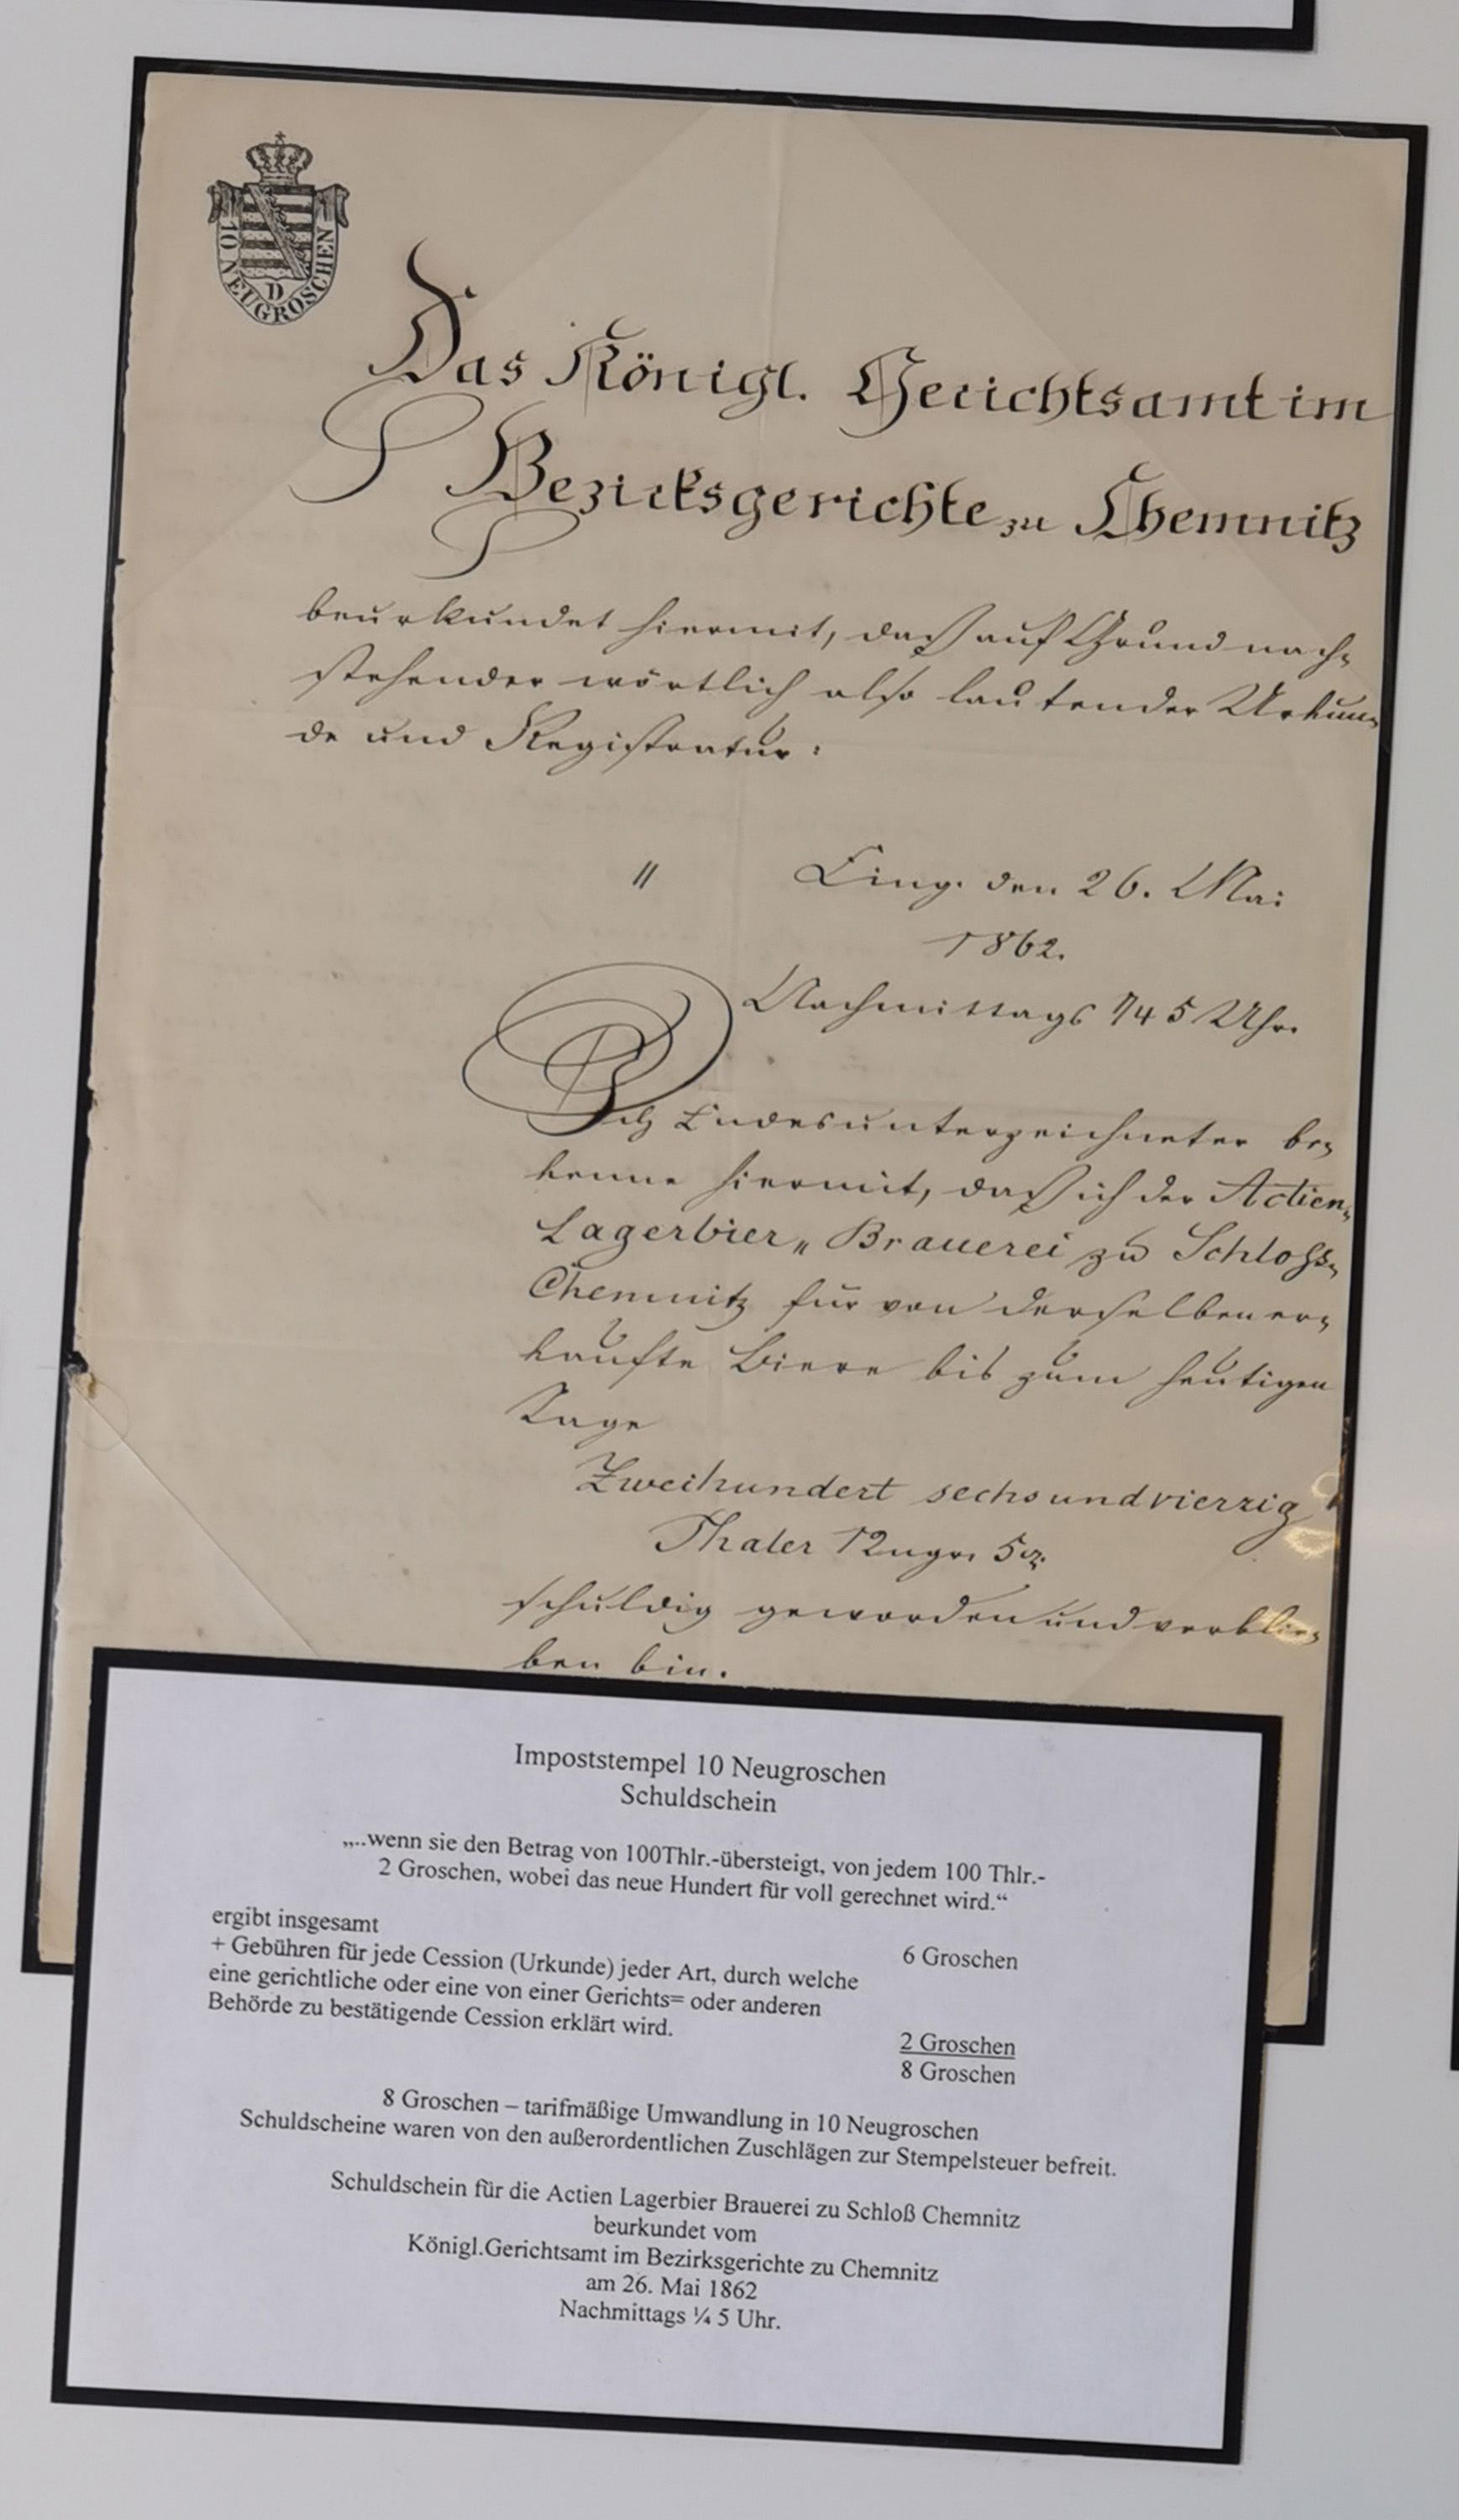 10 NEUGROSCHEN
D
Das Königl. Gerichtsamt im
Bezirksgerichte zu Chemnitz
beurkundet hiermit, daß auf Grund nach-
stehender wörtlich also lautender Urkun-
de und Registratur:
" Eing. den 26. Mai
1862.
Nachmittags 1/4 5 Uhr.
Ich Endesunterzeichneter be-
kenne hiermit, daß ich der Actien-
Lagerbier-Brauerei zu Schloß-
Chemnitz für von derselben er-
kaufte Biere bis zum heutigen
Tage
Zweihundert sechsundvierzig
Thaler 12 ngr. 5 ₰.
schuldig geworden und verblie-
ben bin.
Impoststempel 10 Neugroschen
Schuldschein
„...wenn sie den Betrag von 100Thlr.-übersteigt, von jedem 100 Thlr.-
2 Groschen, wobei das neue Hundert für voll gerechnet wird.“
ergibt insgesamt 6 Groschen
+ Gebühren für jede Cession (Urkunde) jeder Art, durch welche
eine gerichtliche oder eine von einer Gerichts= oder anderen
Behörde zu bestätigende Cession erklärt wird.
2 Groschen
8 Groschen
8 Groschen – tarifmäßige Umwandlung in 10 Neugroschen
Schuldscheine waren von den außerordentlichen Zuschlägen zur Stempelsteuer befreit.
Schuldschein für die Actien Lagerbier Brauerei zu Schloß Chemnitz
beurkundet vom
Königl.Gerichtsamt im Bezirksgerichte zu Chemnitz
am 26. Mai 1862
Nachmittags ¼ 5 Uhr.